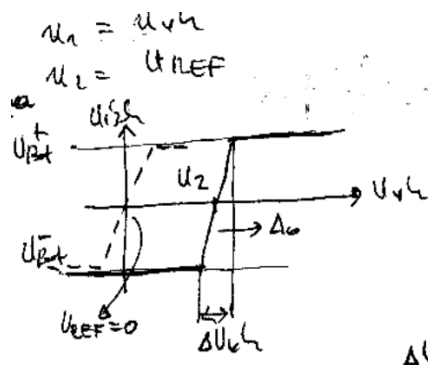 u₁ = u_vh
u₂ = U_REF
u_izh
U⁺_Bat
u₂
U_vh
Δu
U⁻_Bat
U_REF=0
ΔU_vh
ΔU